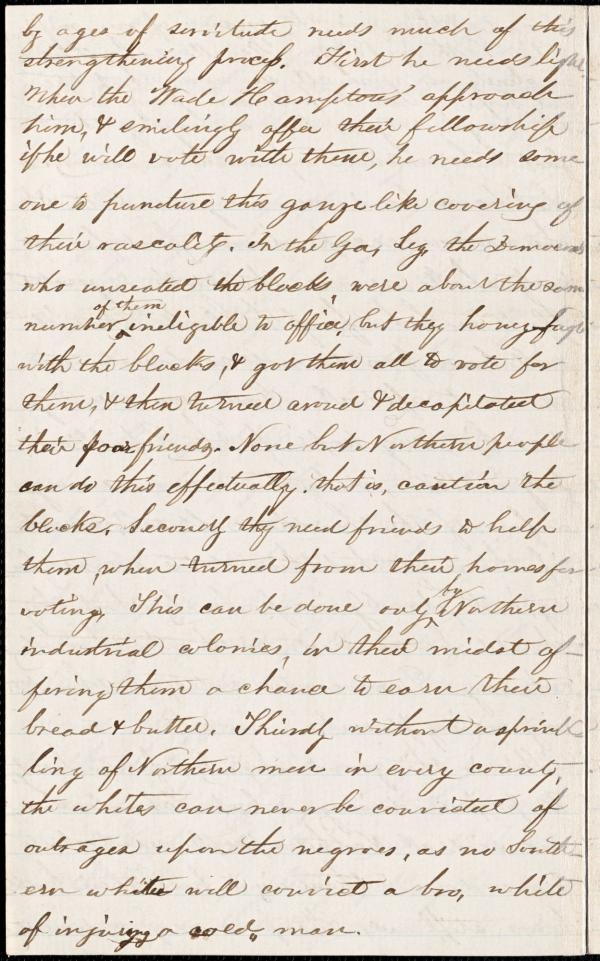 by ages of servitude needs much of this
strengthening process. First he needs light.
When the Wade Hamptons' approach
him, & smilingly offer their fellowship
if he will vote with them, he needs some
one to puncture this gauze like covering of
their rascality. In the Ga, Leg, the Democrats
who unseated the blacks, were about the same
number of them ineligible to office, but they honey fugle
with the blacks, & got them all to vote for
them, & then turned aroud & decapitated
their poor friends. None but Northern people
can do this effectually. that is, caution the
blacks. Secondly they need friends to help
them, when turned from their homes for
voting, This can be done only by Northern
industrial colonies, in their midst of-
fering them a chance to earn their
bread & butter. Thirdly without a sprink
ling of Northern men in every county,
the whites can never be convicted of
outrages upon the negroes, as no South-
ern white will convict a bro, white
of injuring a cold, man.